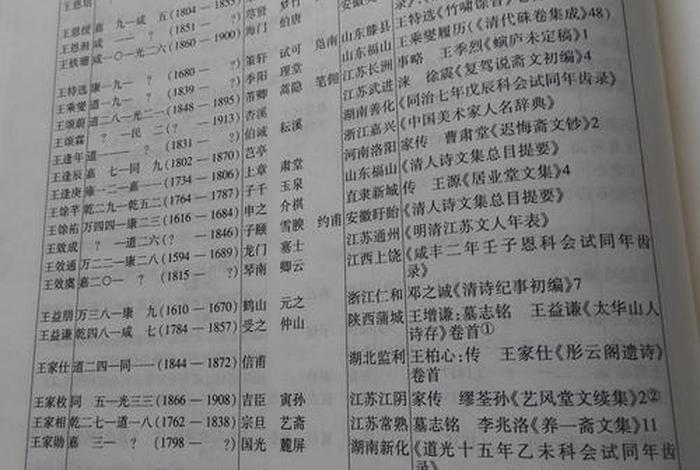 王恩绶 嘉 九—咸 五(1804 — 1855)
王恩湘 咸 — ? (1851 — ?)
王鈇珊 咸一〇—光二六(1860 — 1900) 海门 伯唐
王特选 康一九— ? (1680 — ?) 策轩 试可 凫南 山东滕县 王特选《竹啸馀音》
王乘燮 道一九— ? (1839 — ?) 季阳 理堂 山东福山 王乘燮履历《清代硃卷集成》48
王颂蔚 道二八—光二一(1848 — 1895) 芾卿 蒿隐 笔佣 江苏长洲 事略 王季烈《螾庐未定稿》1
王颂霖 ? —民 二( ? — 1913) 杏溪 江苏武进 涞 徐震《复驾说斋文初编》4
王逢年 道一一— ? (1831 — ?) 伯诚 耘溪 湖南善化《同治七年戊辰科会试同年齿录》
王逢辰 嘉 七—同 九(1802 — 1870) 芑亭 浙江嘉兴《中国美术家人名辞典》
王逢庚 雍一二—嘉一一(1734 — 1806) 上章 肃堂 河南洛阳 家传 曹肃堂《迟悔斋文钞》2
王馀芊 乾二九—乾五二(1764 — 1787) 子千 玉泉 山东福山《清人诗文集总目提要》
王馀祐 万四四—康二三(1616 — 1684) 申之 介祺 直隶新城 传 王源《居业堂文集》4
王效成 ? —道二六( ? — 1846) 子颐 雪腴 约甫 安徽盱眙《清人诗文集总目提要》
王效通 万二二—康二八(1594 — 1689) 龙门 塞士 江苏通州《明清江苏文人年表》
王效虞 嘉二〇— ? (1815 — ?) 琴南 卿云 江西上饶《咸丰二年壬子恩科会试同年齿
录》
王益朋 万三八—康 九(1610 — 1670) 鹤山 元之 浙江仁和 邓之诚《清诗纪事初编》7
王益谦 乾四八—咸 七(1784 — 1857) 受之 仲山 陕西蒲城 王增谦:墓志铭 王益谦《太华山人
诗存》卷首①
王家仕 道二四—同一一(1844 — 1872) 信甫 湖北监利 王柏心:传 王家仕《彤云阁遗诗》
卷首
王家枚 同 五—光三三(1866 — 1908) 吉臣 寅孙 江苏江阴 家传 缪荃孙《艺风堂文续集》2②
王家相 乾二七—道一八(1762 — 1838) 宗旦 艺斋 江苏常熟 墓志铭 李兆洛《养一斋文集》11
王家勋 嘉 三— ? (1798 — ?) 国光 麓屏 湖南新化《道光十五年乙未科会试同年齿
录》